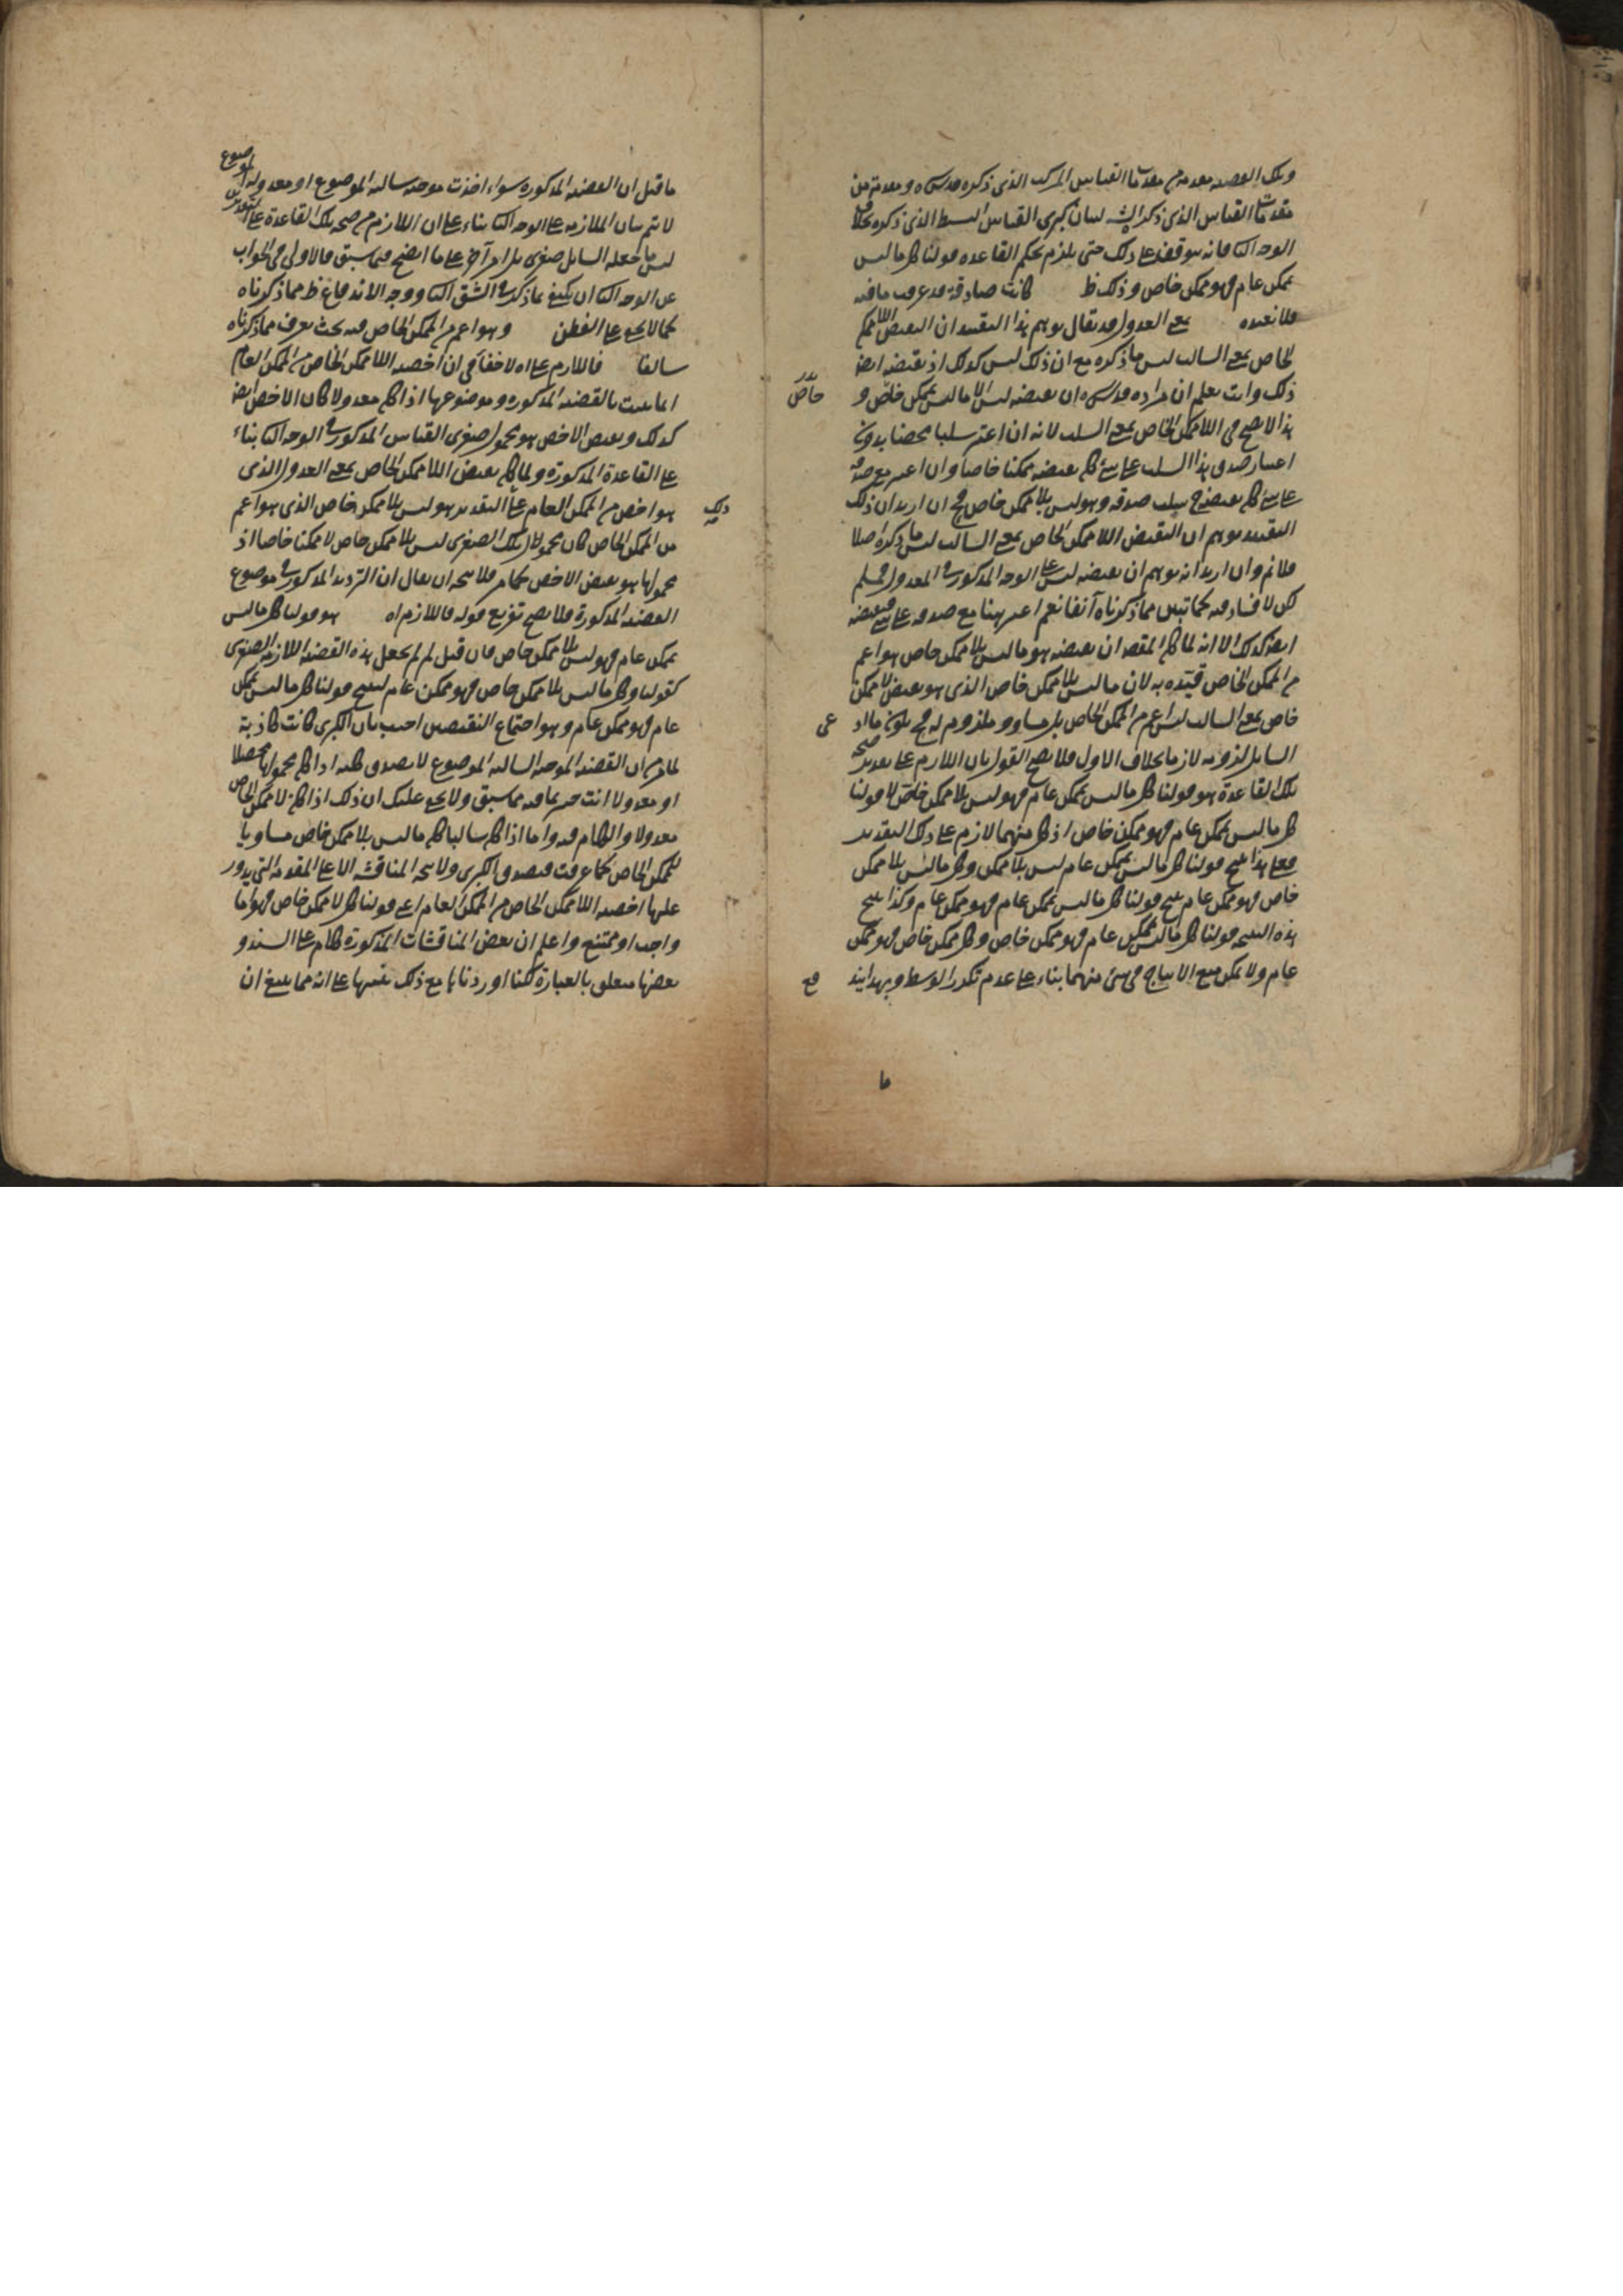 وتلك القضية مقدمة من مقدمات القياس المركب الذي ذكره قدس سره ومقدمة من
مقدمات القياس الذي ذكر الش لبيان كبرى القياس البسيط الذي ذكره بخلاف
الوجه الثا فانه يتوقف على ذلك حتى يلزم بحكم القاعدة قولنا كل ما ليس
بممكن عام فهو ممكن خاص وذلك ظ كانت صادقة قد عرفت ما فيه
فلا نعيده بمعنى العدول قد يقال يوهم هذا التقييد ان النقيض اللاممكن
الخاص بمعنى السالب ليس ما ذكره مع ان ذلك ليس كذلك اذ نقيضه ايضا
ذلك وانت تعلم ان مراده قدس سره ان نقيضه ليس الا ما ليس بممكن خاص و
هذا لا يصح في اللاممكن الخاص بمعنى السلب لانه ان اعتبر سلبا محضا بدون
اعتبار صدق هذا السلب على شئ كان نقيضه ممكنا خاصا وان اعتبر مع صدقه
على شئ كان نقيضه ح سلب صدقه وهو ليس بلا ممكن خاص فح ان اريد ان ذلك
التقييد يوهم ان النقيض اللاممكن الخاص بمعنى السالب ليس ما ذكره اصلا
فلا نم وان اريد انه يوهم ان نقيضه ليس على الوجه المذكور في المعدول فمسلم
لكن لا فساد فيه كما تبين مما ذكرناه آنفا نعم اعتبر ههنا مع صدقه على شئ فنقيضه
ايضا كذلك الا انه لما كان المقصد ان نقيضه هو ما ليس بلا ممكن خاص هو اعم
من الممكن الخاص قيده به لان ما ليس بلا ممكن خاص الذي هو نقيض لا ممكن
خاص بمعنى السالب ليس اعم من الممكن الخاص بل مساو وملزوم له فح يكون ما اد
السايل لزومه لازما بخلاف الاول فلا يصح القول بان اللازم على تقدير صحة
تلك القاعدة هو قولنا كل ما ليس بممكن عام فهو ليس بلا ممكن خاص لا قولنا
كل ما ليس بممكن عام فهو ممكن خاص اذ كل منهما لازم على ذلك التقدير
فعلى هذا ينتج قولنا كل ما ليس بممكن عام ليس بلا ممكن وكل ما ليس بلا ممكن
خاص فهو ممكن عام ينتج قولنا كل ما ليس بممكن عام فهو ممكن عام وكذا ينتج
هذه النتيجة قولنا كل ما ليس بممكن عام فهو ممكن خاص وكل ممكن خاص فهو ممكن
عام ولا يمكن منع الانتاج في شئ منهما بناء على عدم تكرر الوسط وبهذا يند
ما قيل ان القضية المذكورة سواء اخذت موجبة سالبة الموضوع او معدولة الموضوع
لا يتم بيان الملازمة على الوجه الثا بناء على ان اللازم من صحة تلك القاعدة على التقديرين
ليس ما جعله السايل صغرى بل امر آخر على ما اتضح فيما سبق فالاولى في الجواب
عن الوجه الثا ان يكتفى بما ذكر في الشق الثا ووجه الاندفاع ظ مما ذكرناه
كما لا يخفى على الفطن وهو اعم من الممكن الخاص فيه بحث يعرف مما ذكرناه
سالفا فاللازم على اه لا خفاء في ان اخصية اللاممكن الخاص من الممكن العام
انما يثبت بالقضية المذكورة وموضوعها اذا كان معدولا كان الاخص ايضا
كذلك ونقيض الاخص هو محمول صغرى القياس المذكور في الوجه الثا بناء
على القاعدة المذكورة ولما كان نقيض اللاممكن الخاص بمعنى العدول الذي
هو اخص من الممكن العام على التقدير هو ليس بلا ممكن خاص الذي هو اعم
من الممكن الخاص كان محمول تلك الصغرى ليس بلا ممكن خاص لا ممكنا خاصا اذ
محمولها هو نقيض الاخص كما مر فلا يتجه ان يقال ان الترديد المذكور في موضوع
القضية المذكورة فلا يصح تفريع قوله فاللازم اه هو قولنا كل ما ليس
بممكن عام فهو ليس بلا ممكن خاص فان قيل لم لم يجعل هذه القضية اللازمة الصغرى
لقولنا وكل ما ليس بلا ممكن خاص فهو ممكن عام لينتج قولنا كل ما ليس بممكن
عام فهو ممكن عام وهو اجتماع النقيضين اجيب بان الكبرى كانت كاذبة
لما مر ان القضية الموجبة السالبة الموضوع لا يصدق كلية اذا كان محمولها محصلا
او معدولا وانت خبير بما فيه مما سبق ولا يخفى عليك ان ذلك اذا كان لا ممكن الخاص
معدولا والكلام فيه واما اذا كان سالبا كان ما ليس بلا ممكن خاص مساويا
للممكن الخاص كما عرفت فيصدق الكبرى ولا يتجه المناقشة الا على المقدمة التي يدور
عليها اخصية اللاممكن الخاص من الممكن العام اعني قولنا كل لا ممكن خاص فهو اما
واجب او ممتنع واعلم ان بعض المناقشات المذكورة كلام على السند و
بعضها متعلق بالعبارة لكنا اوردناها مع ذلك تنبيها على انه مما ينبغي ان